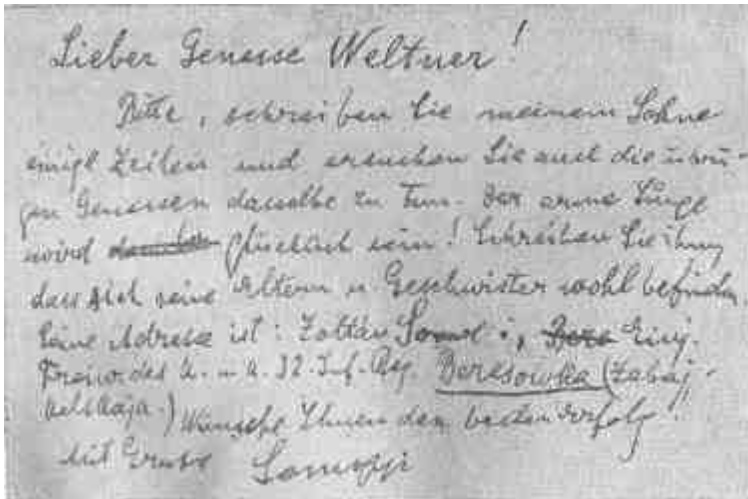 Lieber Genosse Weltner!
Bitte, schreiben Sie meinem Sohne
einige Zeilen und ersuchen Sie auch die übri-
gen Genossen dasselbe zu tun. Der arme Junge
wird glücklich sein! Schreiben Sie ihm
dass sich seine Eltern u Geschwister wohl befinden
Seine Adresse ist: Zoltán Einj.
Freiw. des k. u. k. 32. Inf. Reg. Beresowka (Zabaj-
kalskaja.) Wünsche Ihnen den besten Erfolg!
Mit Gruss Somogyi